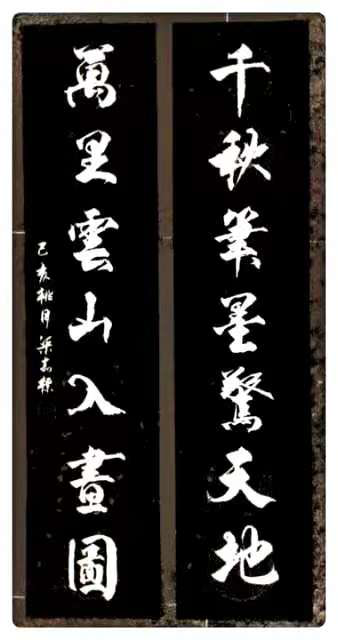 千秋筆墨驚天地
萬里雲山入畫圖
己亥桃月梁志標